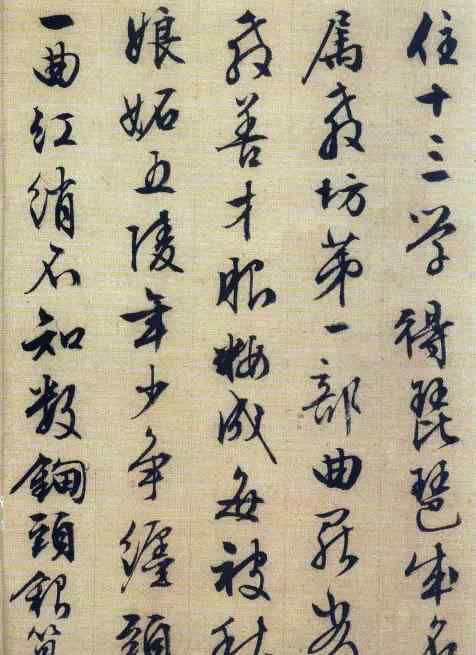 住十三学得琵琶成名
属教坊第一部曲罷
教善才服粧成每被秋
娘妬五陵年少争纏頭
一曲红绡不知数鈿頭銀篦